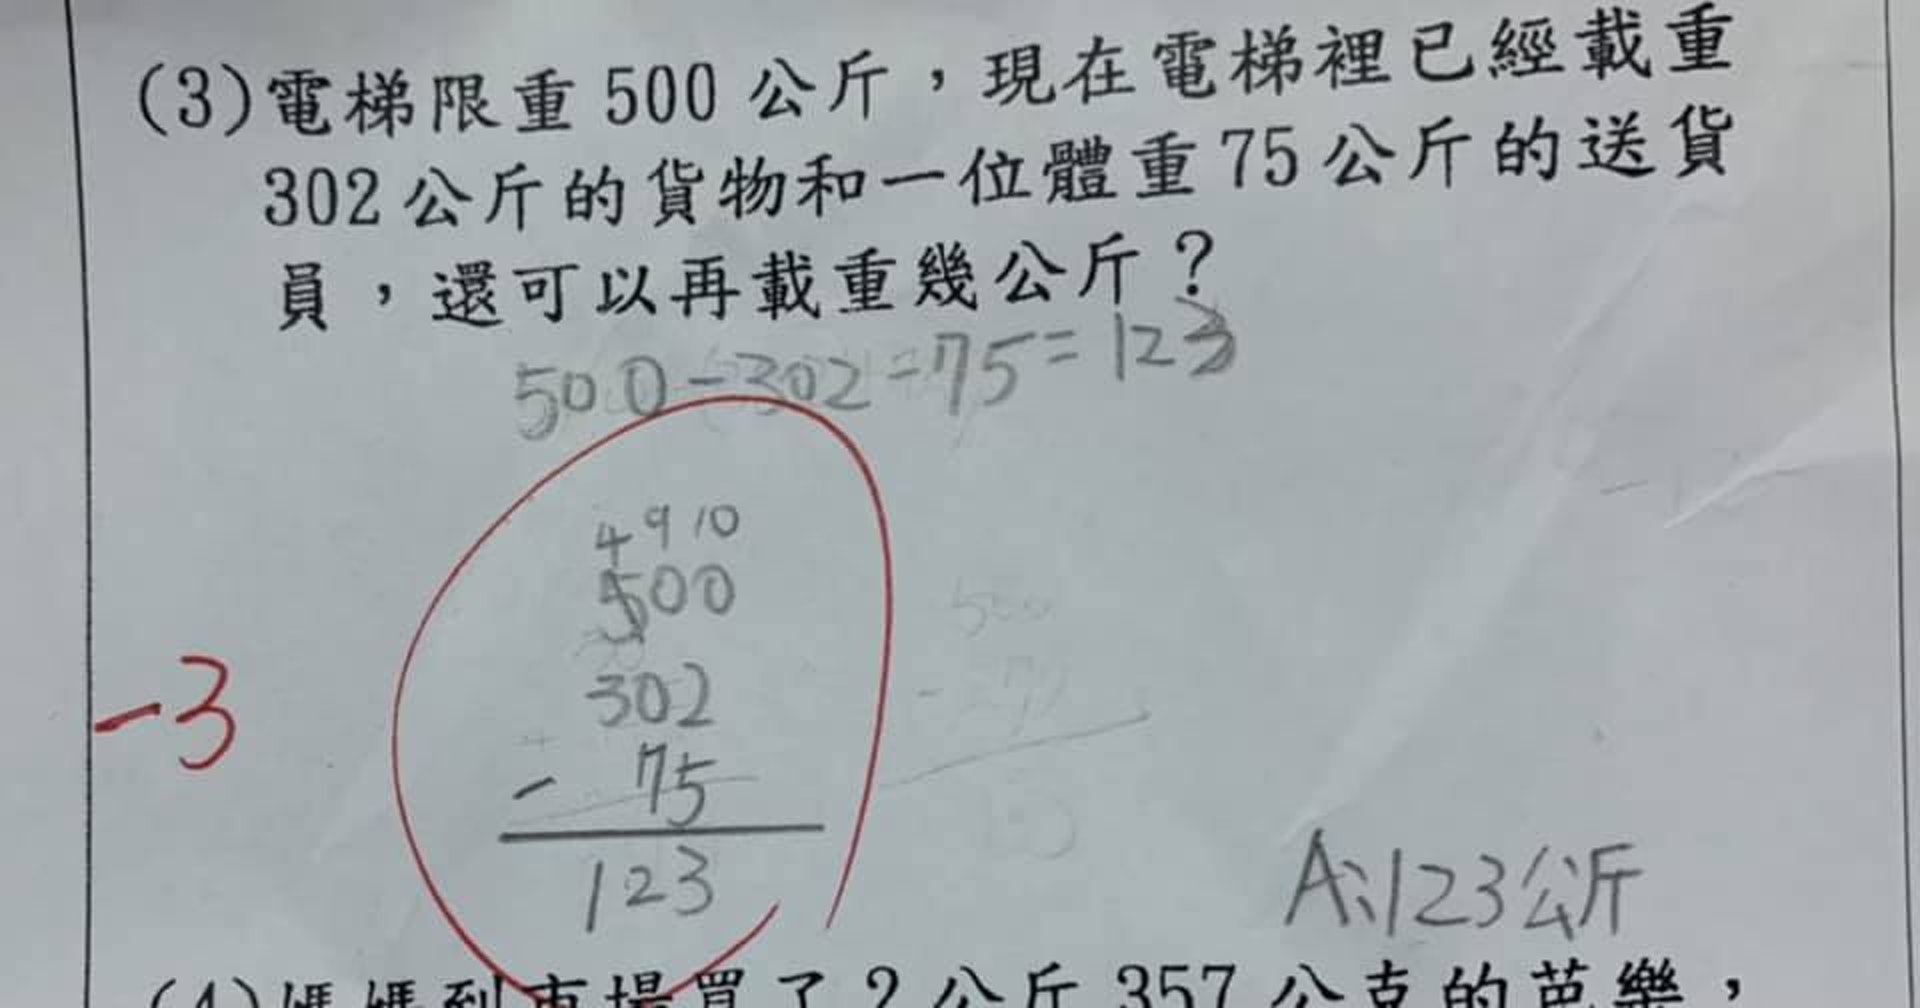 (3)電梯限重500公斤，現在電梯裡已經載重
302公斤的貨物和一位體重75公斤的送貨
員，還可以再載重幾公斤？
500-302-75=123
4 9 10
500
302
- 75
123
-3
A:123公斤
(4)媽媽到市場買了2公斤357公克的芭樂，